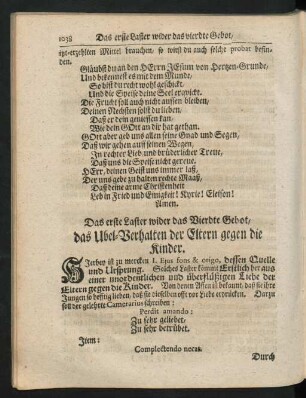 1038 Das erste Laster wider das vierdte Gebot,
itzt-erzehlten Mittel brauchen, so wirst du auch solche probat befin-
den.
Gläubst du an den HErrn JEsum von Hertzen-Grunde,
Und bekennest es mit dem Munde,
So bist du recht wohl geschickt,
Und die Speise deine Seel erqvickt.
Die Frucht soll auch nicht aussen bleiben,
Deinen Nechsten solst du lieben,
Daß er dein geniessen kan,
Wie dein GOtt an dir hat gethan.
GOtt aber geb uns allen seine Gnad und Segen,
Daß wir gehen auf seinen Wegen,
In rechter Lieb und brüderlicher Treue,
Daß uns die Speise nicht gereue.
HErr, deinen Geist uns immer laß,
Der uns gebe zu halten rechte Maaß,
Daß deine arme Christenheit
Leb in Fried und Einigkeit! Kyrie! Eleison!
Amen.
Das erste Laster wider das Vierdte Gebot,
das Übel-Verhalten der Eltern gegen die
Kinder.
Hierbey ist zu mercken I. Ejus fons & origo, dessen Quelle
und Ursprung. Solches Laster kömmt Erstlich her aus
einer unordentlichen und überflüßigen Liebe der
Eltern gegen die Kinder. Von denen Affen ist bekannt, daß sie ihre
Jungen so hefftig lieben, daß sie dieselben offt vor Liebe erdrücken. Darzu
soll der gelehrte Camerarius schreiben:
Perdit amando:
Zu sehr geliebet,
Zu sehr betrübet.
Item:
Complectendo necat.
Durch